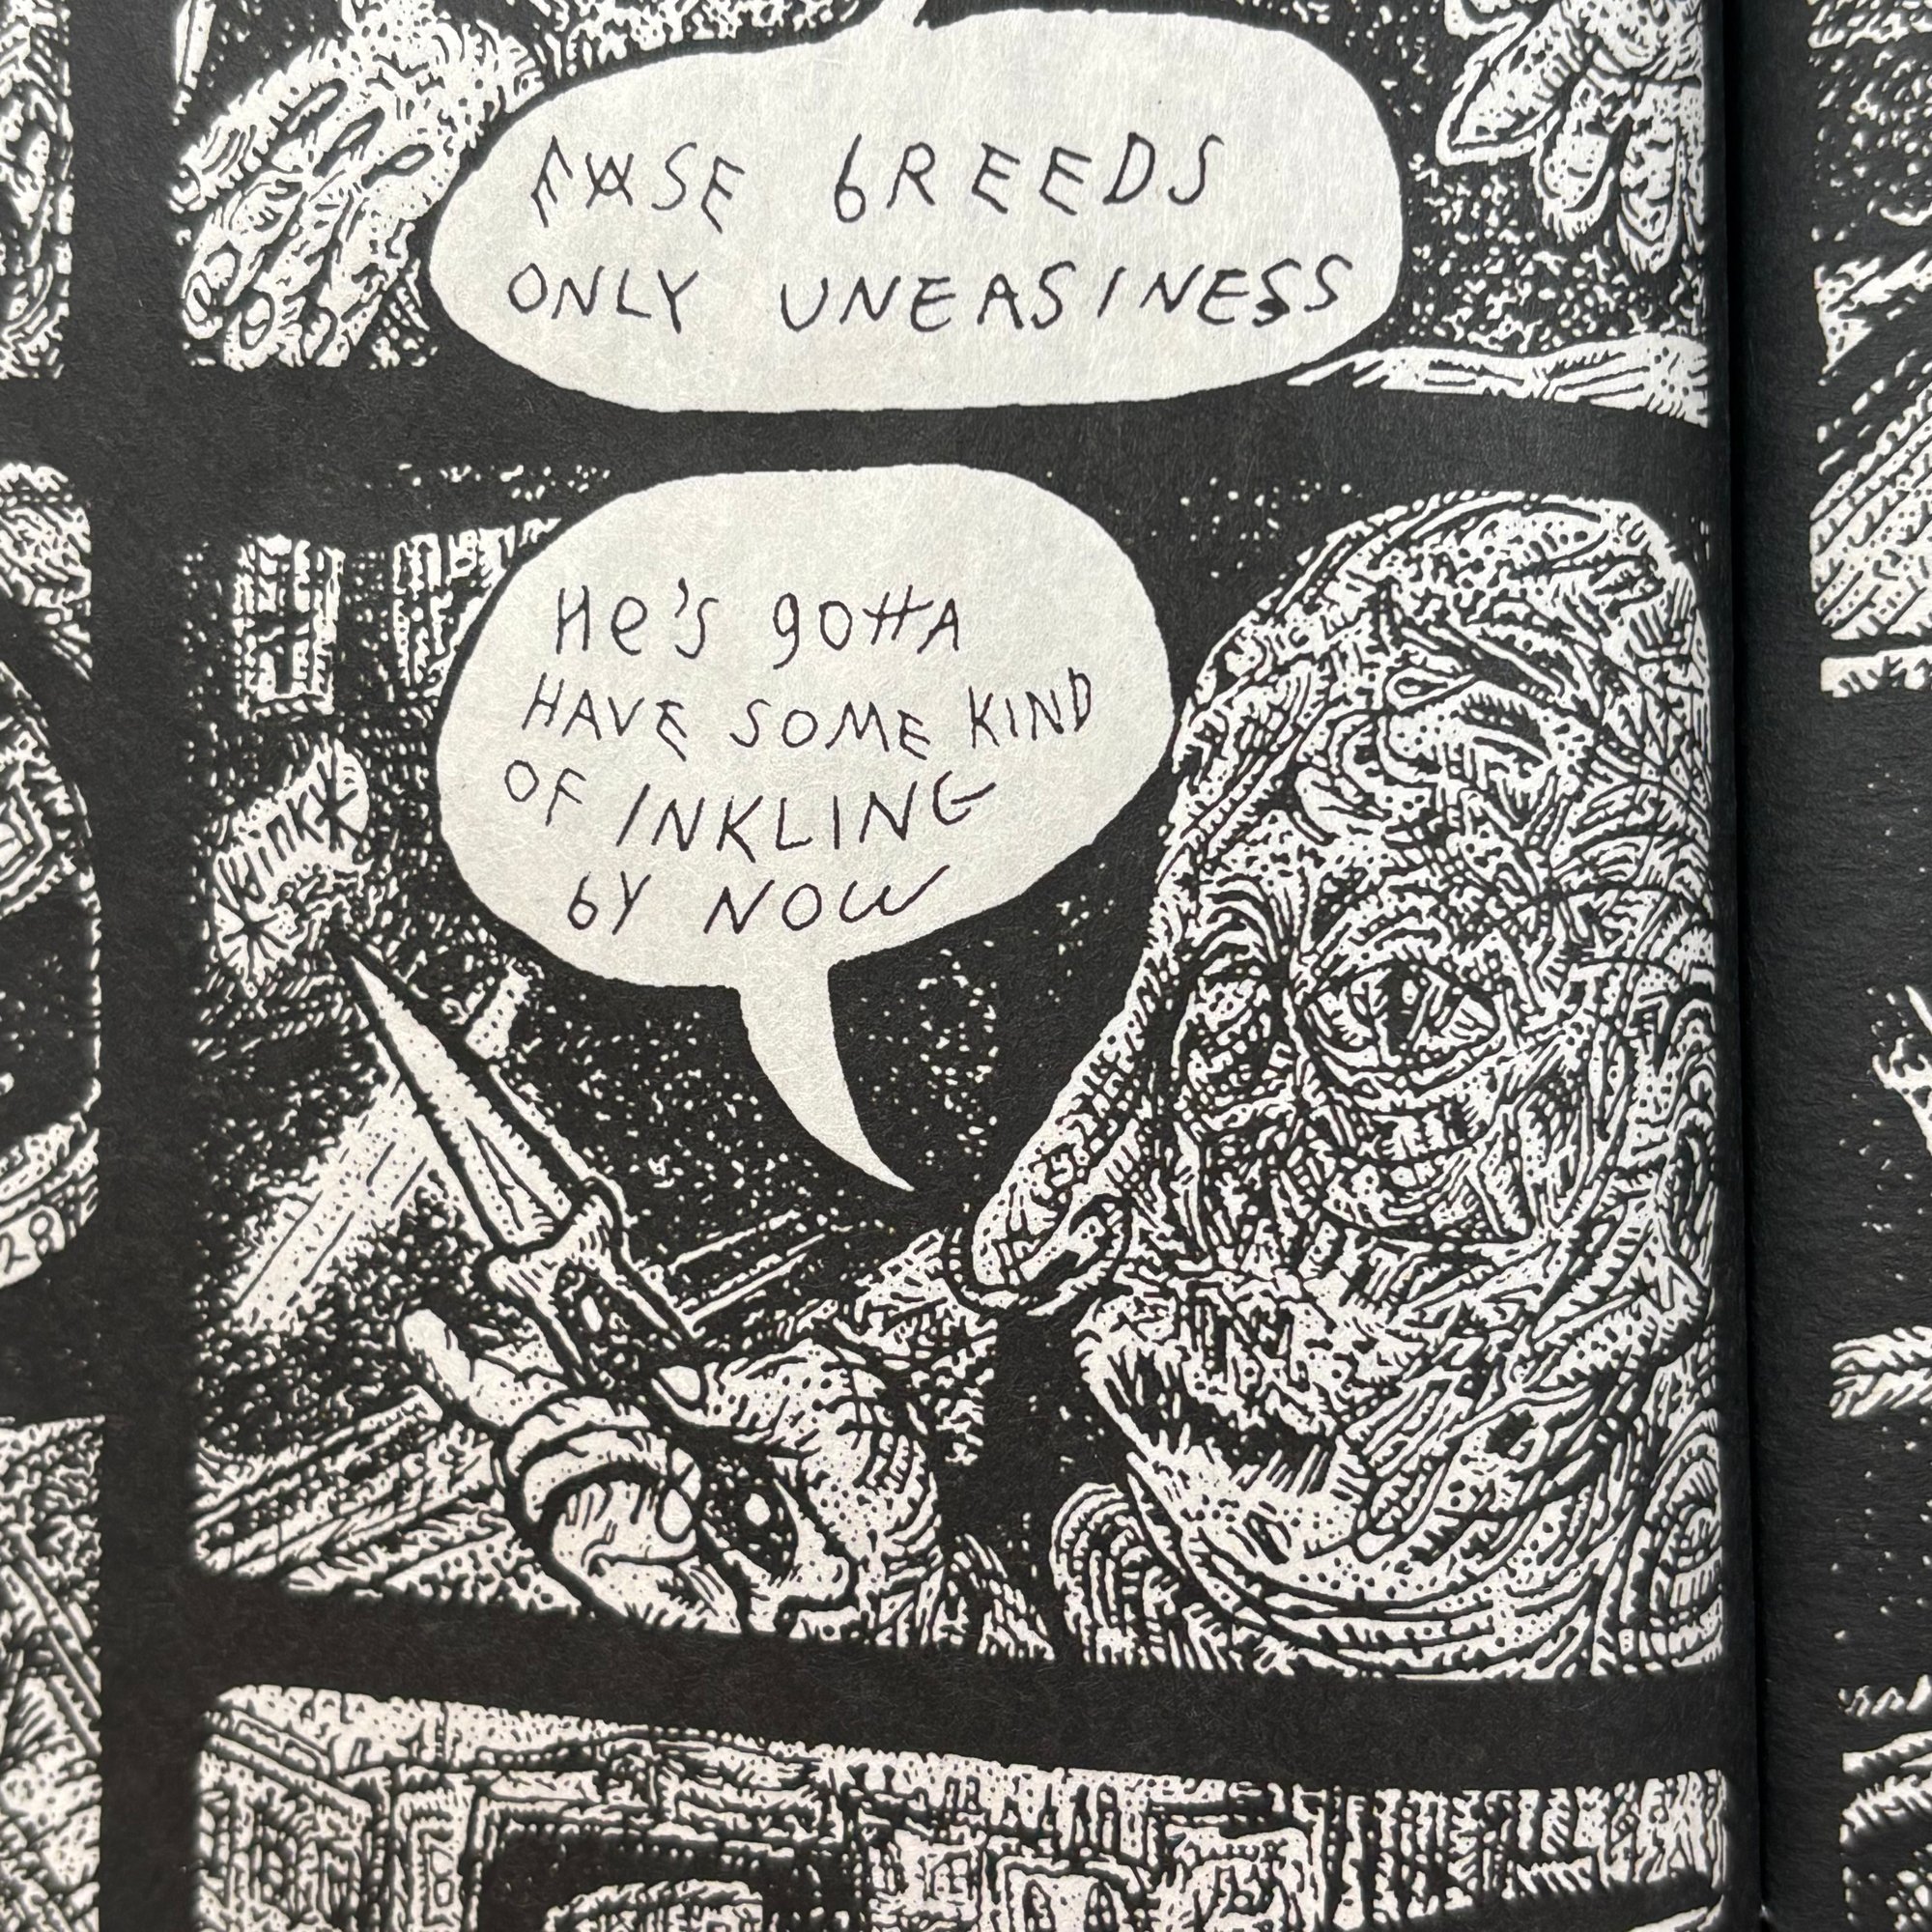 EASE bREEDS
ONLY UNEASINESS
He's gOttA
HAVE SOME KIND
OF INKLING
bY NOW
28